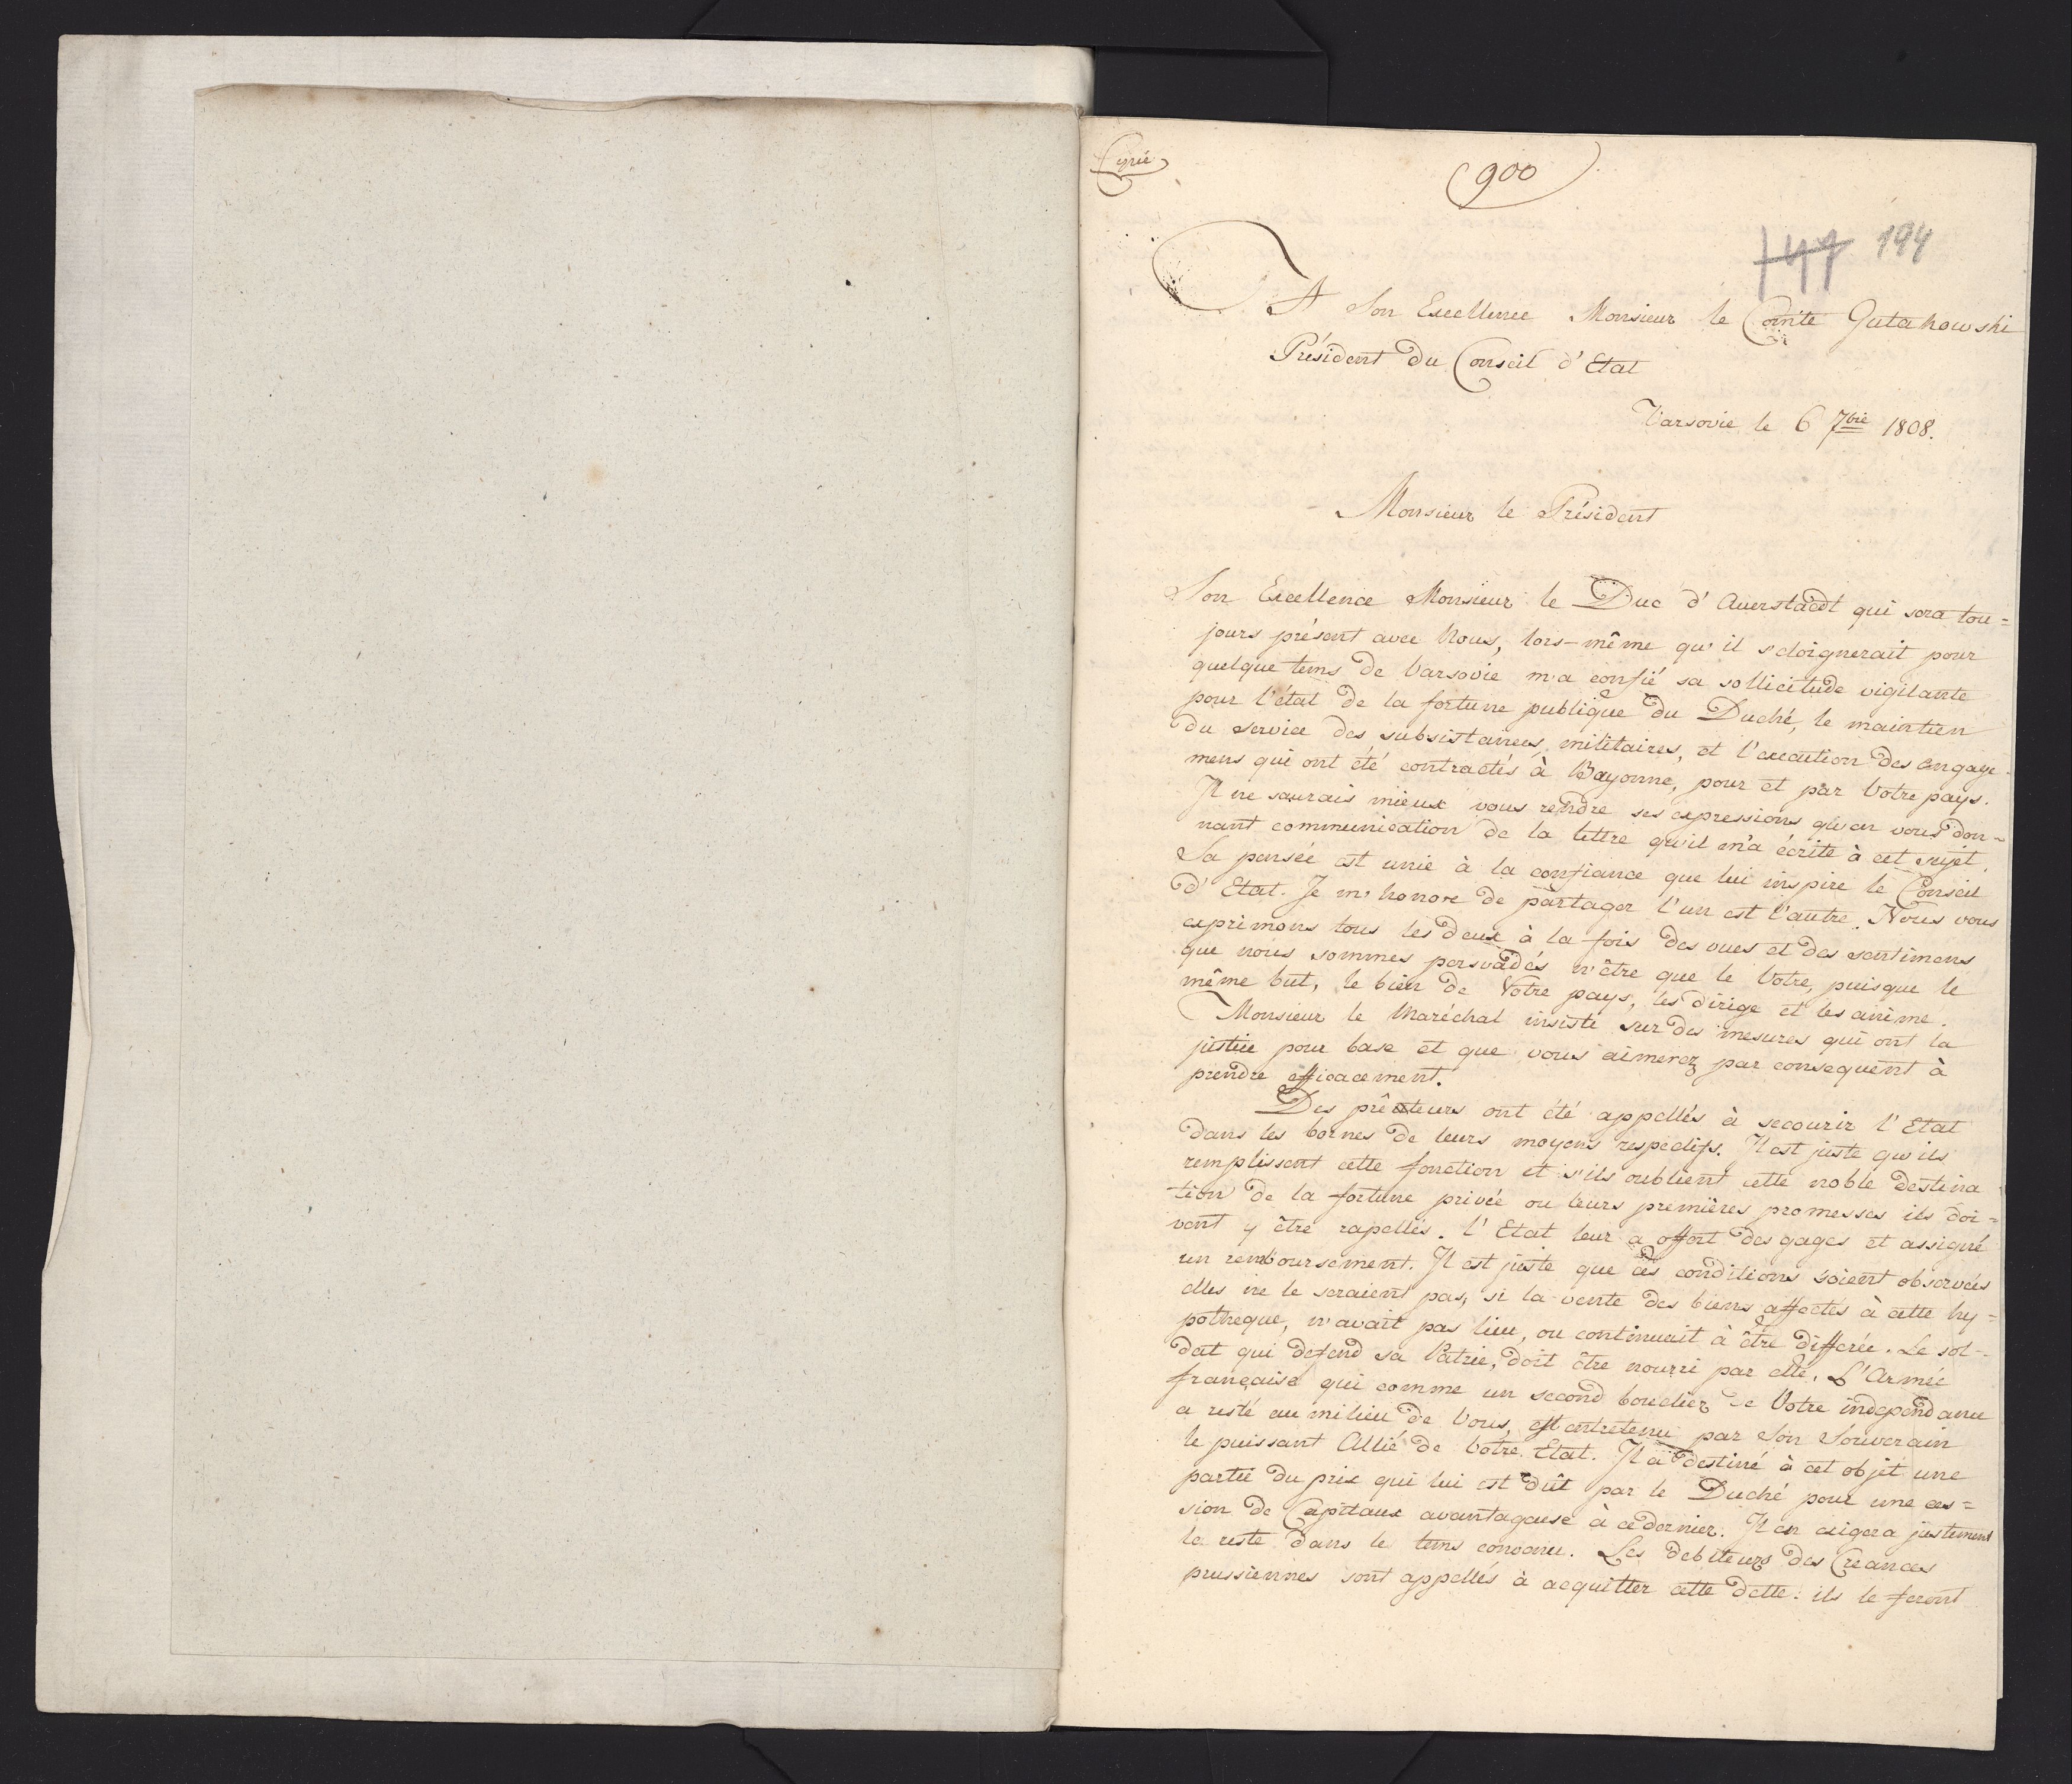 900
147 194
A Son Excellence Monsieur le Comte Gutakowski
Président du Conseil d'Etat
Varsovie le 6 7bre 1808.
Monsieur le Président
Son Excellence Monsieur le Duc d'Auerstaedt qui sera tou=
jours présent avec Vous, lors-même qu'il s'eloignerait pour
quelque tems de Varsovie m'a confié sa sollicitude vigilante
pour l'état de la fortune publique du Duché, le maintien
du service des subsistances militaires, et l'execution des engage-
mens qui ont été contractés à Bayonne, pour et par Votre pays.
Il ne saurais mieux vous rendre ses expressions qu'en vous don-
nant communication de la lettre qu'il m'a écrite à cet sujet.
Sa pensée est unie à la confiance que lui inspire le Conseil
d'Etat. Je m'honore de partager l'un est l'autre. Nous vous
exprimons tous les deux à la fois des vues et des sentimens
que nous sommes persvadés n'être que le Votre, puisque le
même but, le bien de Votre pays, les dirige et les anime.
Monsieur le Maréchal insiste sur des mesures qui ont la
justice pour base et que vous aimerez par consequent à
prendre efficacement.
Des prêteurs ont été appellés à secourir l'Etat
dans les bornes de leurs moyens respectifs. Il est juste qu'ils
remplissent cette fonction et s'ils oublient cette noble destina
tion de la fortune privée ou leurs premières promesses ils doi=
vent y être rapellés. l'Etat leur a offert des gages et assigné
un remboursement. Il est juste que ces conditions soient observées
elles ne le seraient pas, si la vente des biens affectés à cette hy=
potheque, n'avait pas lieu, ou continuait à être differée. Le sol-
dat qui defend sa Patrie, doit être nourri par elle. L'Armée
française qui comme un second bouclier de Votre independance
a resté au milieu de Vous, est entretenu par Son Souverain
le puissant Allié de Votre Etat. Il a destiné à cet objet une
partie du prix qui lui est dût par le Duché pour une ces=
sion de Capitaux avantageuse à ce dernier. Il en exigera justement
le reste dans le tems convenu. Les debiteurs des Creances
prussiennes sont appellés à acquitter cette dette: ils le feront